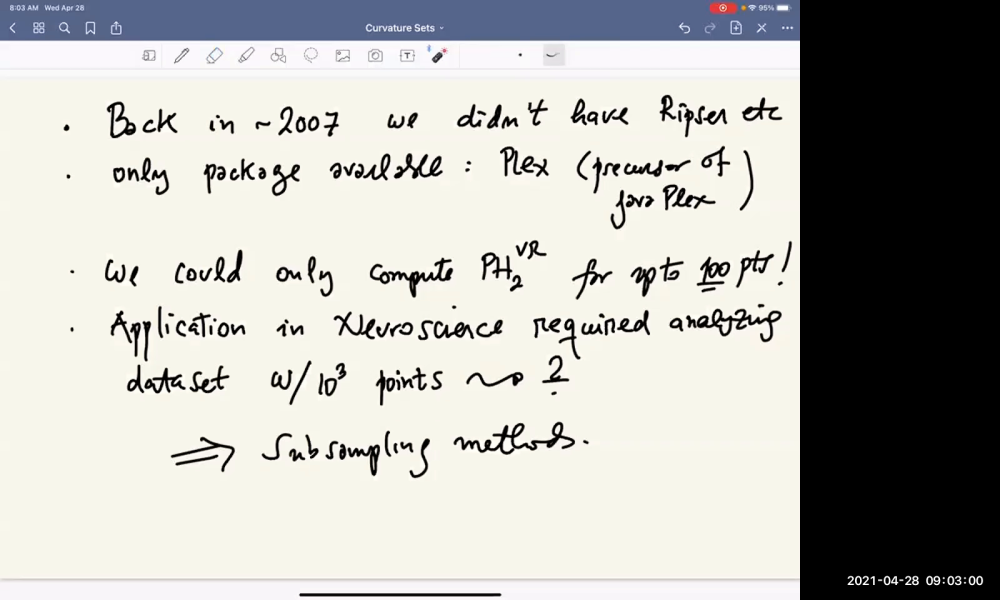 8:03 AM Wed Apr 28
95%
Curvature Sets
T
• Back in ~2007 we didn't have Ripser etc
• only package available : Plex (precursor of
java Plex)
• We could only compute PH₂^VR for up to 100 pts!
• Application in Neuroscience required analyzing
dataset w/ 10³ points ⇝ ?
⇒ Subsampling methods.
2021-04-28 09:03:00